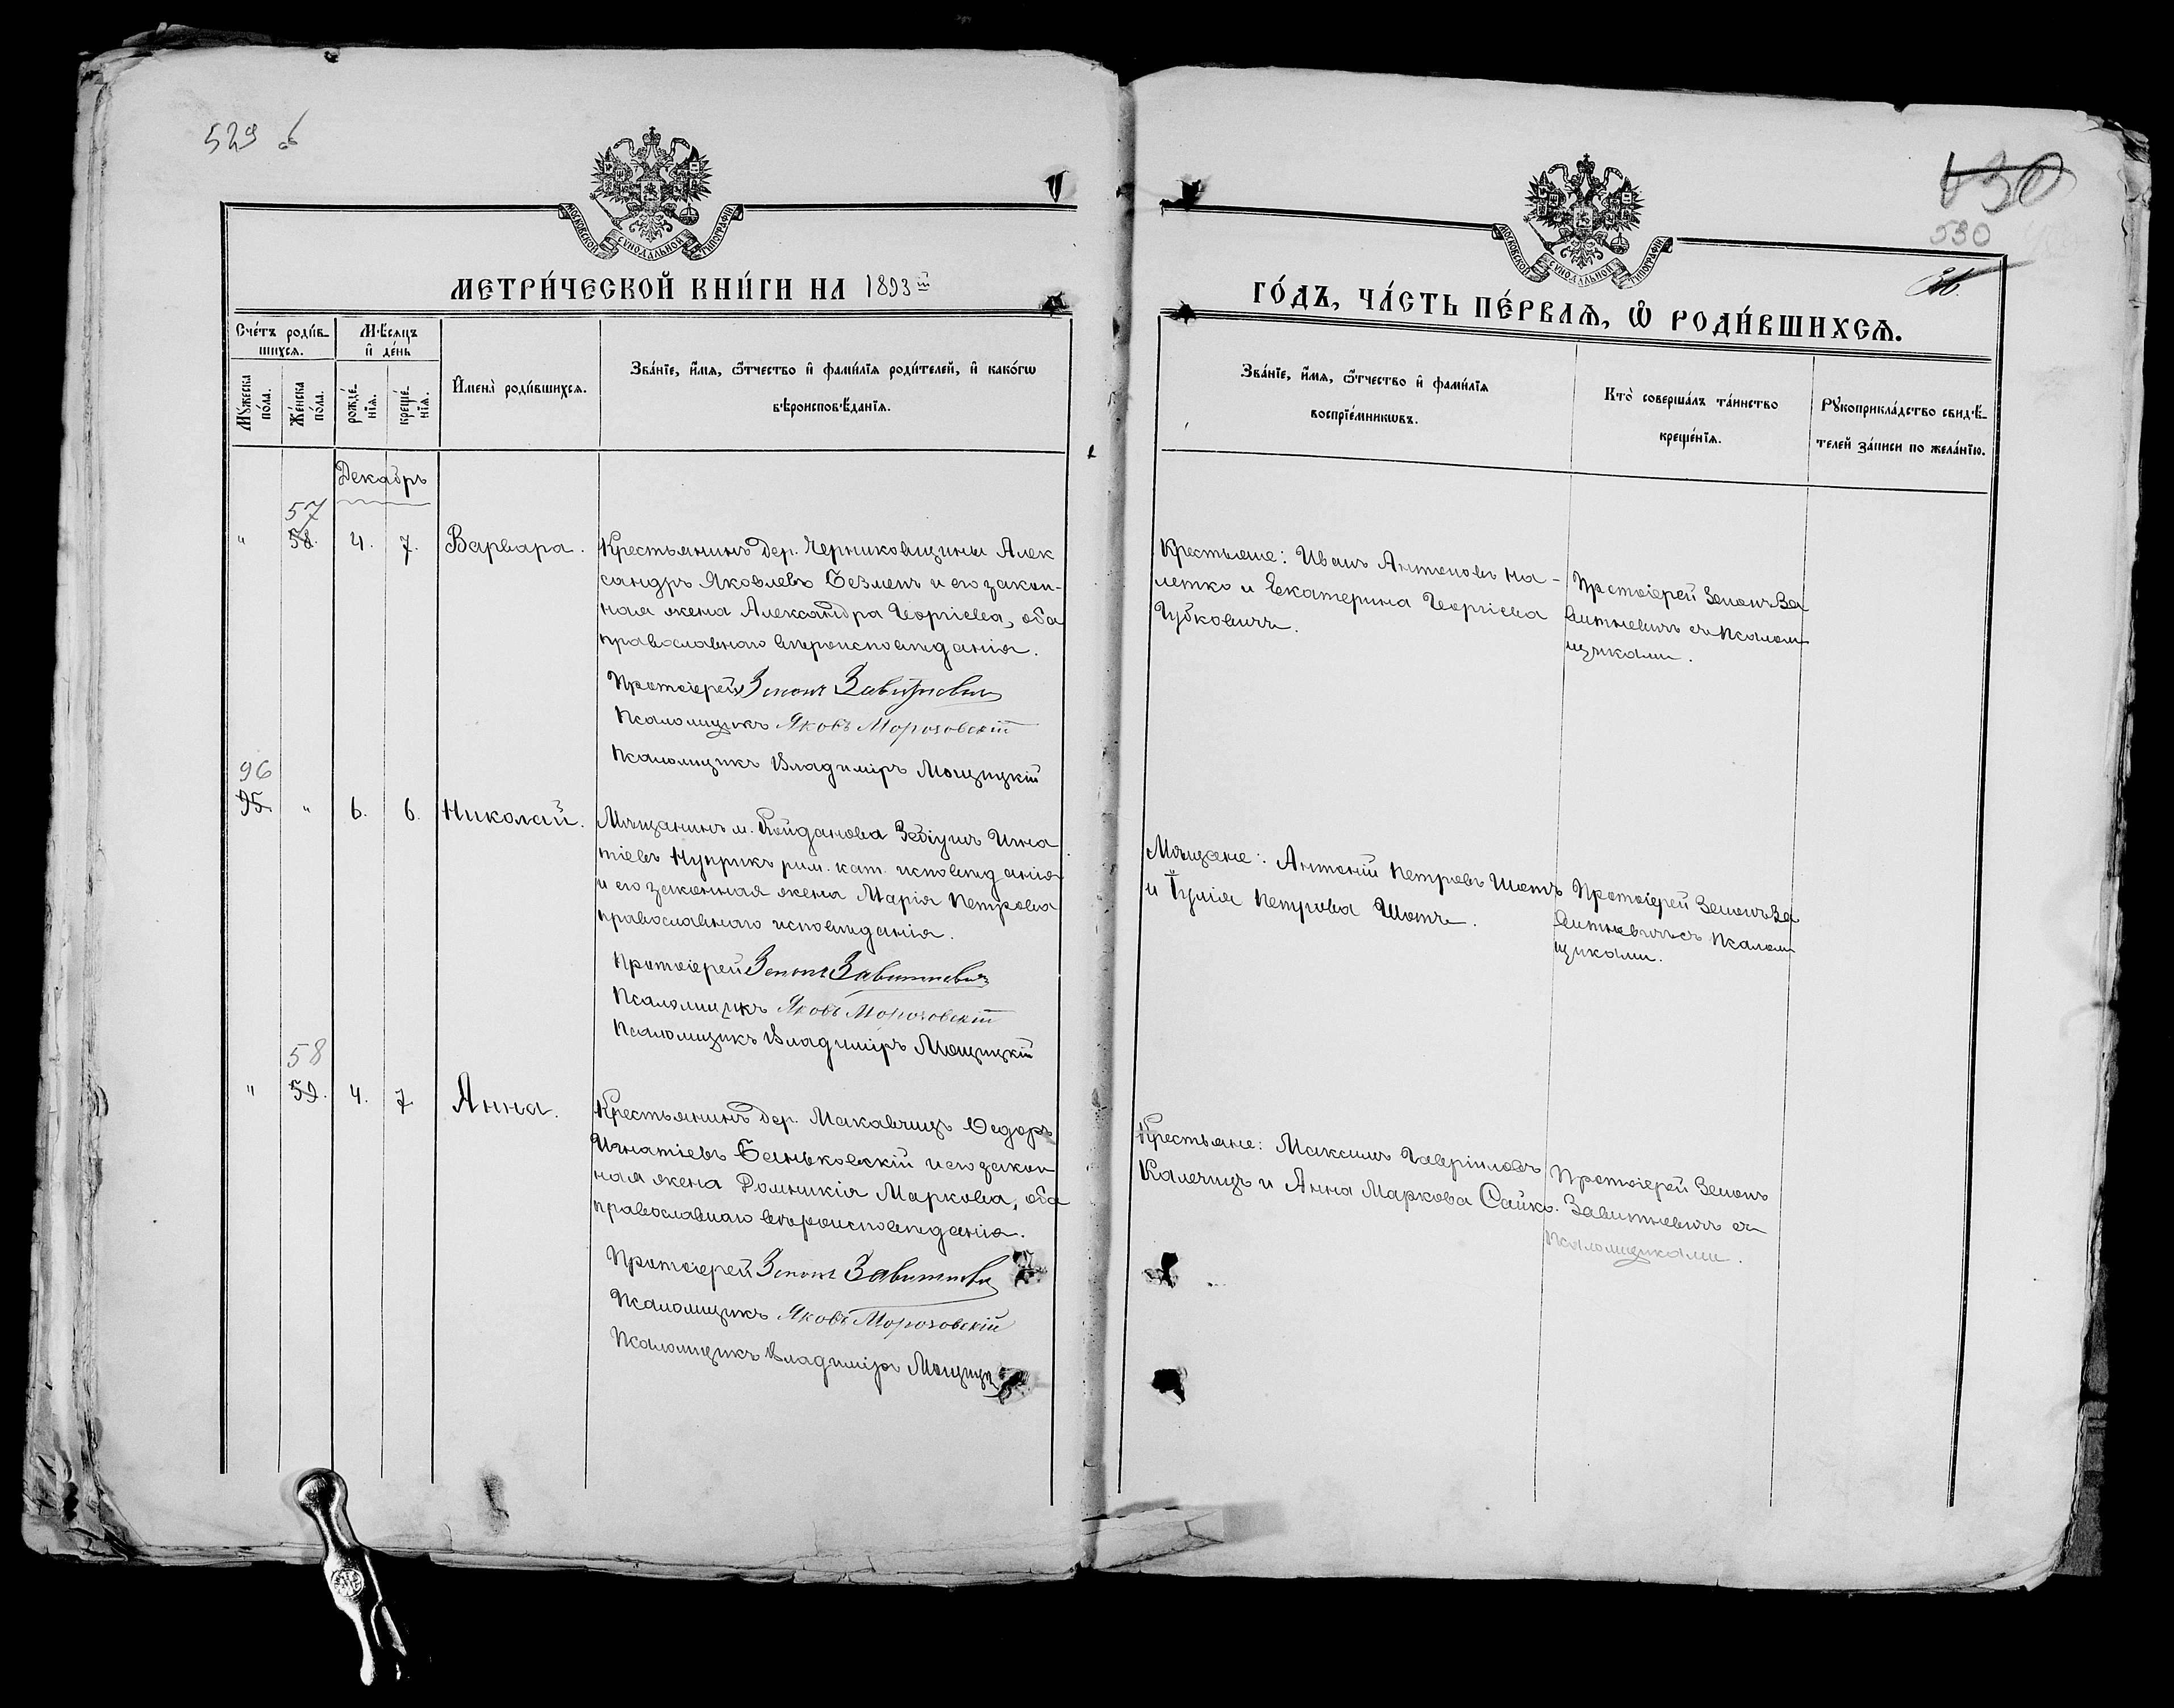 529 б
МОСКОВСКОЙ СѴНОДАЛЬНОЙ ТИПОГРАФІИ
МЕТРИ́ЧЕСКОЙ КНИ́ГИ НА 1893й
Сче́тъ роди́в-
шихсѧ.
Мѣ́сяцъ
и҆ де́нь
Мꙋ́жеска
по́ла.
Же́нска
по́ла.
рожде́-
нїѧ.
креще́-
нїѧ.
И҆мена̀ роди́вшихсѧ.
Зва́нїе, и҆́мѧ, ѻ҆́тчество и҆ фами́лїѧ роди́телей, и҆ како́гѡ
вѣроисповѣ́данїѧ.
Декабрь
57
" 58. 4. 7. Варвара.
Крестьянинъ дер. Черниковщины Алек
сандръ Яковлевъ Безменъ и его закон-
ная жена Александра Георгіева, оба
православнаго вѣроисповѣданія.
Протоіерей Зенонъ Завитневичъ
Псаломщикъ Яковъ Морозовскій
Псаломщикъ Владиміръ Мощицкій
96
95. " 6. 6. Николай.
Мѣщанинъ м. Койданова Игна
тіевъ рим. кат. исповѣданія
и его законная жена Марія Петрова
православнаго исповѣданія.
Протоіерей Зенонъ Завитневичъ
Псаломщикъ Яковъ Морозовскій
Псаломщикъ Владиміръ Мощицкій
58
" 59. 4. 7 Анна.
Крестьянинъ дер. Макавчицъ Ѳедоръ
Игнатіевъ Баньковскій и его закон
ная жена Домникія Маркова, оба
православнаго вѣроисповѣданія.
Протоіерей Зенонъ Завитневичъ
Псаломщикъ Яковъ Морозовскій
Псаломщикъ Владиміръ Мощицк
530
МОСКОВСКОЙ СѴНОДАЛЬНОЙ ТИПОГРАФІИ
ГО́ДЪ, ЧА́СТЬ ПЕ́РВАѦ, Ѡ҆ РОДИ́ВШИХСѦ.
Зва́нїе, и҆́мѧ, ѻ҆́тчество и҆ фами́лїѧ
воспрїе́мникѡвъ.
Кто̀ соверша́лъ та́инство
креще́нїѧ.
Рꙋкоприкла́дство свидѣ́-
телей за́писи по жела́нїю.
Крестьяне: Иванъ Антоновъ На-
летко и Екатерина Георгіева
Губковичъ.
Протоіерей Зенонъ За
витневичъ съ псалом
щиками.
Мѣщане: Антоній Петровъ Шотъ
и Іулія Петрова Шотъ.
Протоіерей Зенонъ За
витневичъ съ псалом
щиками.
Крестьяне: Максимъ Гавріиловъ
Калечицъ и Анна Маркова Сайко.
Протоіерей Зенонъ
Завитневичъ съ
псаломщиками.